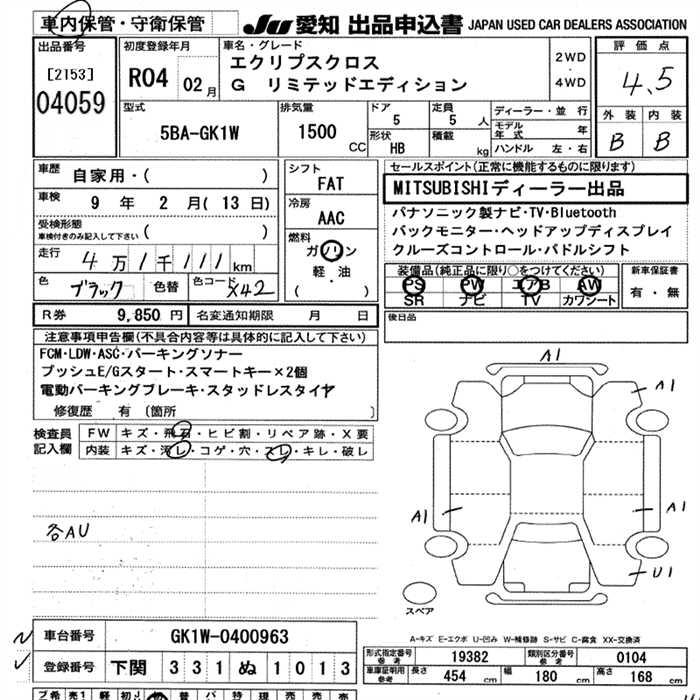 車内保管・守衛保管
JU 愛知 出品申込書 JAPAN USED CAR DEALERS ASSOCIATION
出品番号
[2153]
04059
初度登録年月
R04 02月
車名・グレード
エクリプスクロス
G リミテッドエディション
2WD
・
4WD
評価点
4.5
外装 内装
B B
型式
5BA-GK1W
排気量
1500 CC
ドア
5
定員
5 人
形状
HB
積載
kg
ディーラー・並行
モデル年式 年
ハンドル 左・右
車歴
自家用・( )
車検
9 年 2 月( 13 日)
受検形態
車検付きのみ記入して下さい ( )
走行
4万1千111km
色
ブラック
色替
色コード X42
シフト
FAT
冷房
AAC
燃料
ガソリン
軽・油
( )
セールスポイント(正常に機能するものに限ります)
MITSUBISHIディーラー出品
パナソニック製ナビ・TV・Bluetooth
バックモニター・ヘッドアップディスプレイ
クルーズコントロール・パドルシフト
装備品(純正品に限り○をつけてください)
PS PW エアB AW
SR ナビ TV カワシート
新車保証書
有・無
R券 9,850 円 名変通知期限 月 日
後日品
注意事項申告欄(不具合内容等は具体的に記入して下さい)
FCM・LDW・ASC・パーキングソナー
プッシュE/Gスタート・スマートキー×2個
電動パーキングブレーキ・スタッドレスタイヤ
修復歴 有 〔箇所 〕
検査員記入欄
FW キズ・飛石・ヒビ割・リペア跡・X要
内装 キズ・汚レ・コゲ・穴・スレ・キレ・破レ
各AU
A1
A1
A1
A1
U1
スペア
A-キズ E-エクボ U-凹み W-補修跡 S-サビ C-腐食 XX-交換済
車台番号 GK1W-0400963
登録番号 下関 331 ぬ 1013
形式指定番号
参考
19382
類別区分番号
参考
0104
車庫証明用
参考
長さ 454 cm 幅 180 cm 高さ 168 cm